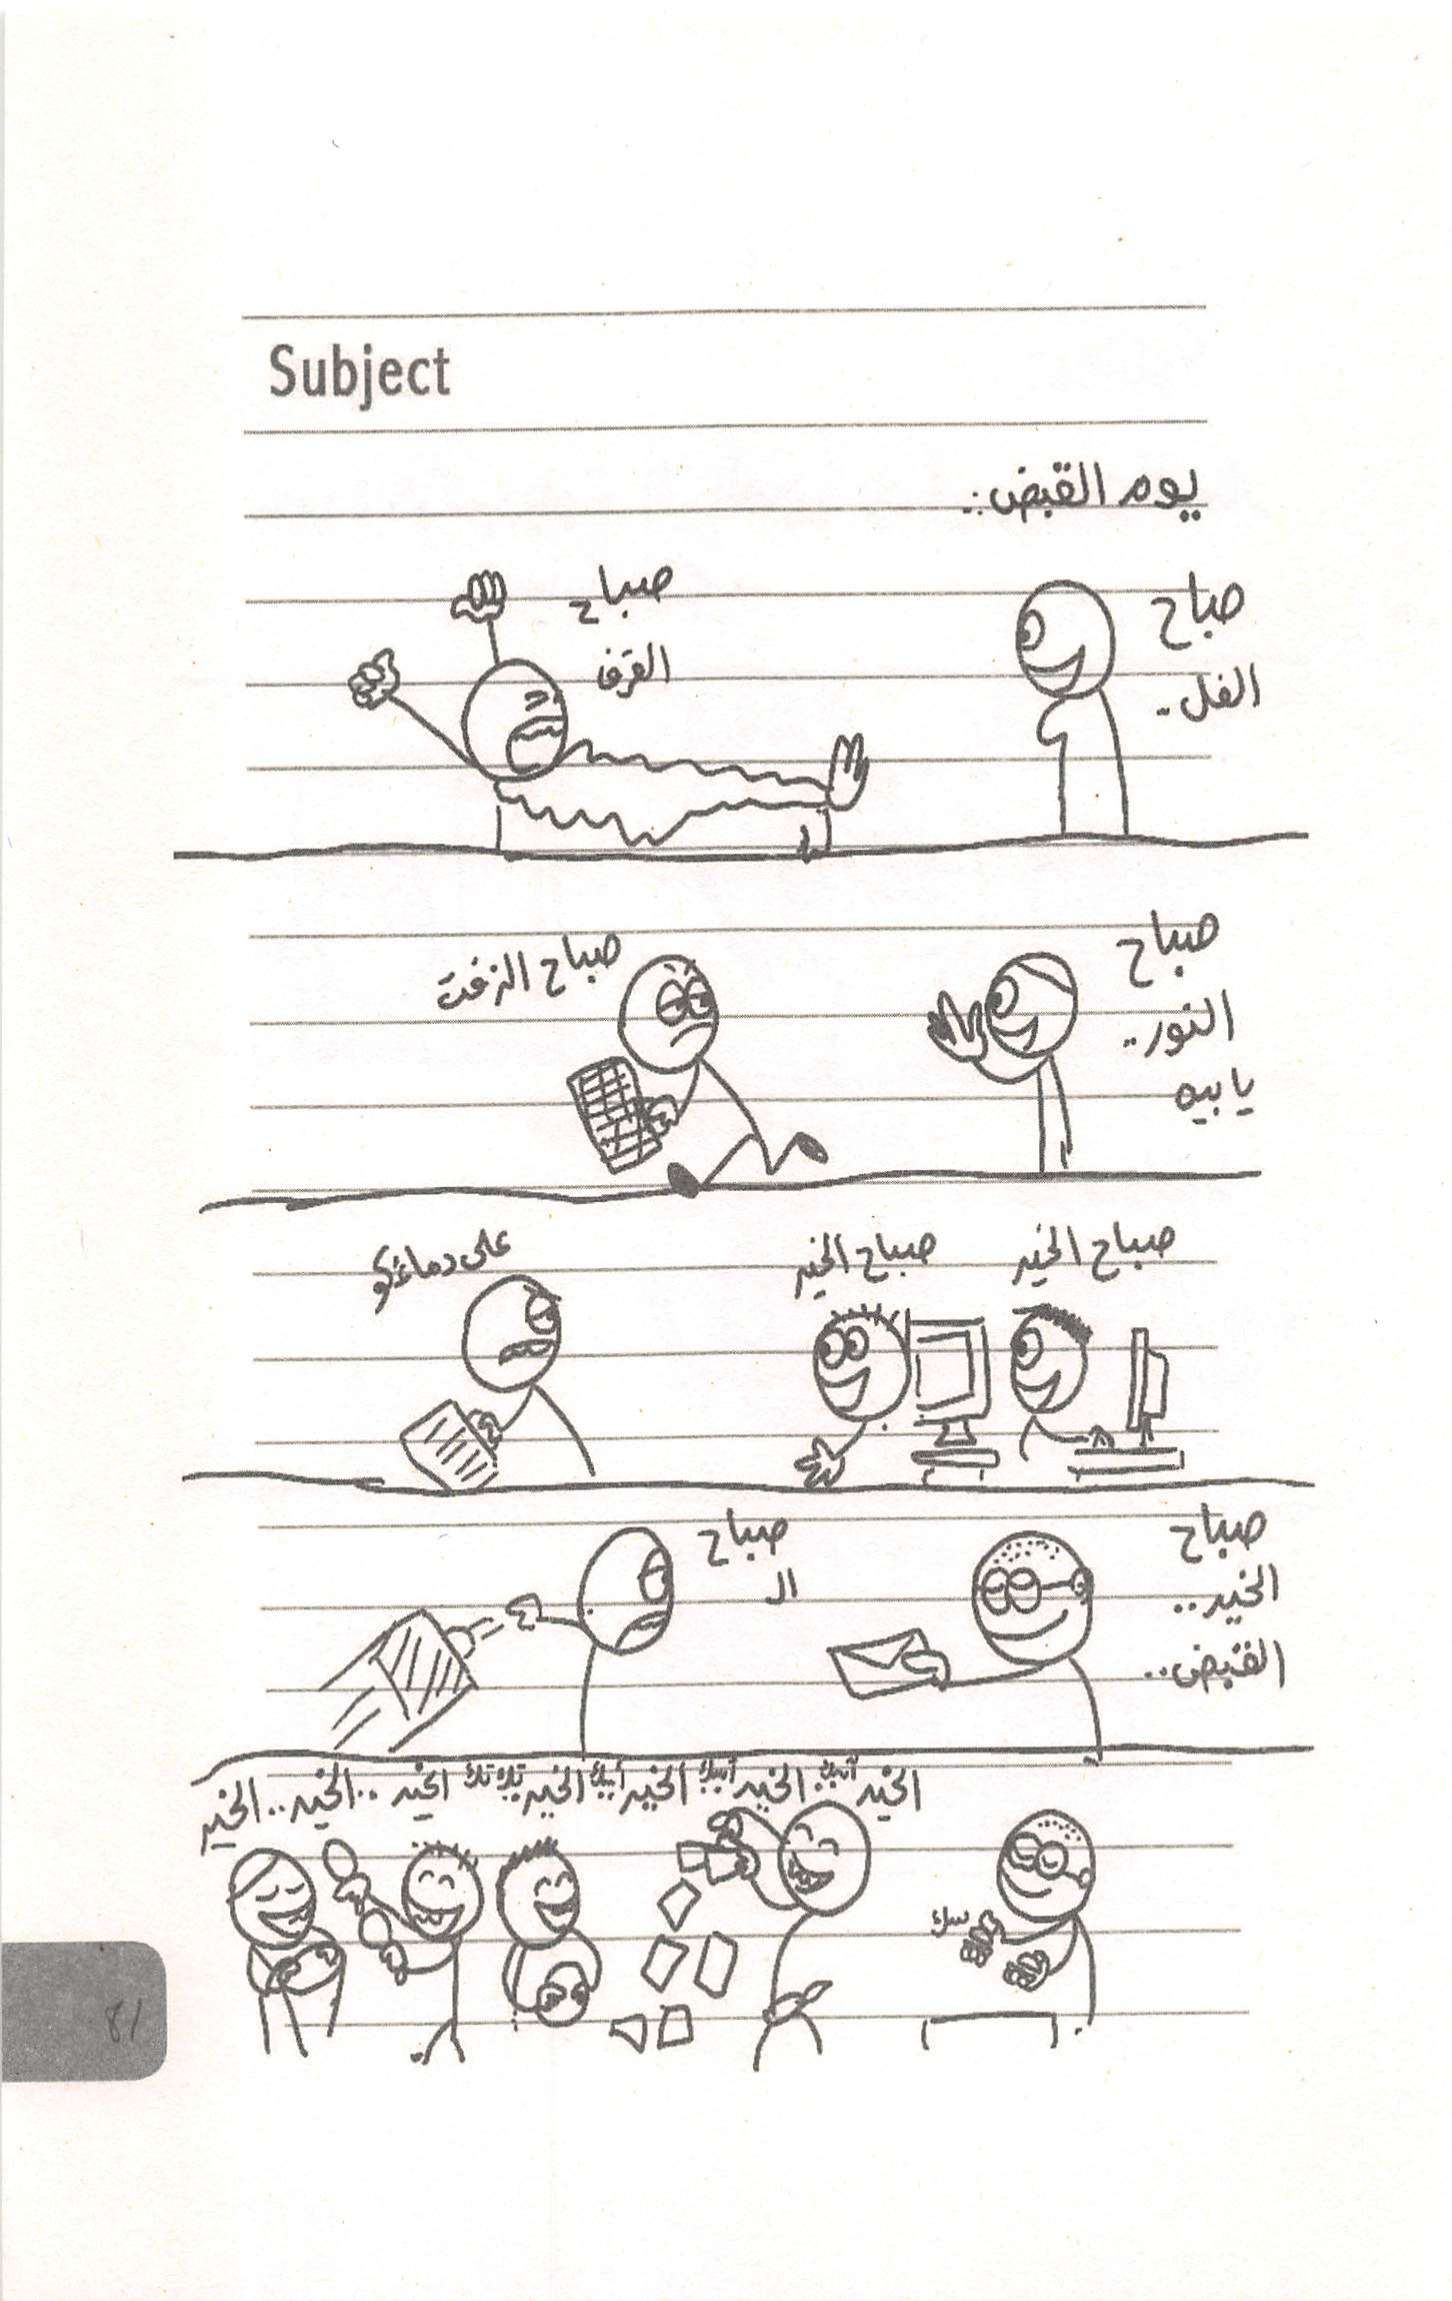 Subject
يوم القبض..
صباح
الفل..
صباح
القرف
صباح
النور..
يا بيه
صباح الزفت
صباح الخير
صباح الخير
على دماغكو
صباح
الخير..
القبض..
صباح
الـ
الخير الخير الخير الخير الخير .. الخير .. الخير
81